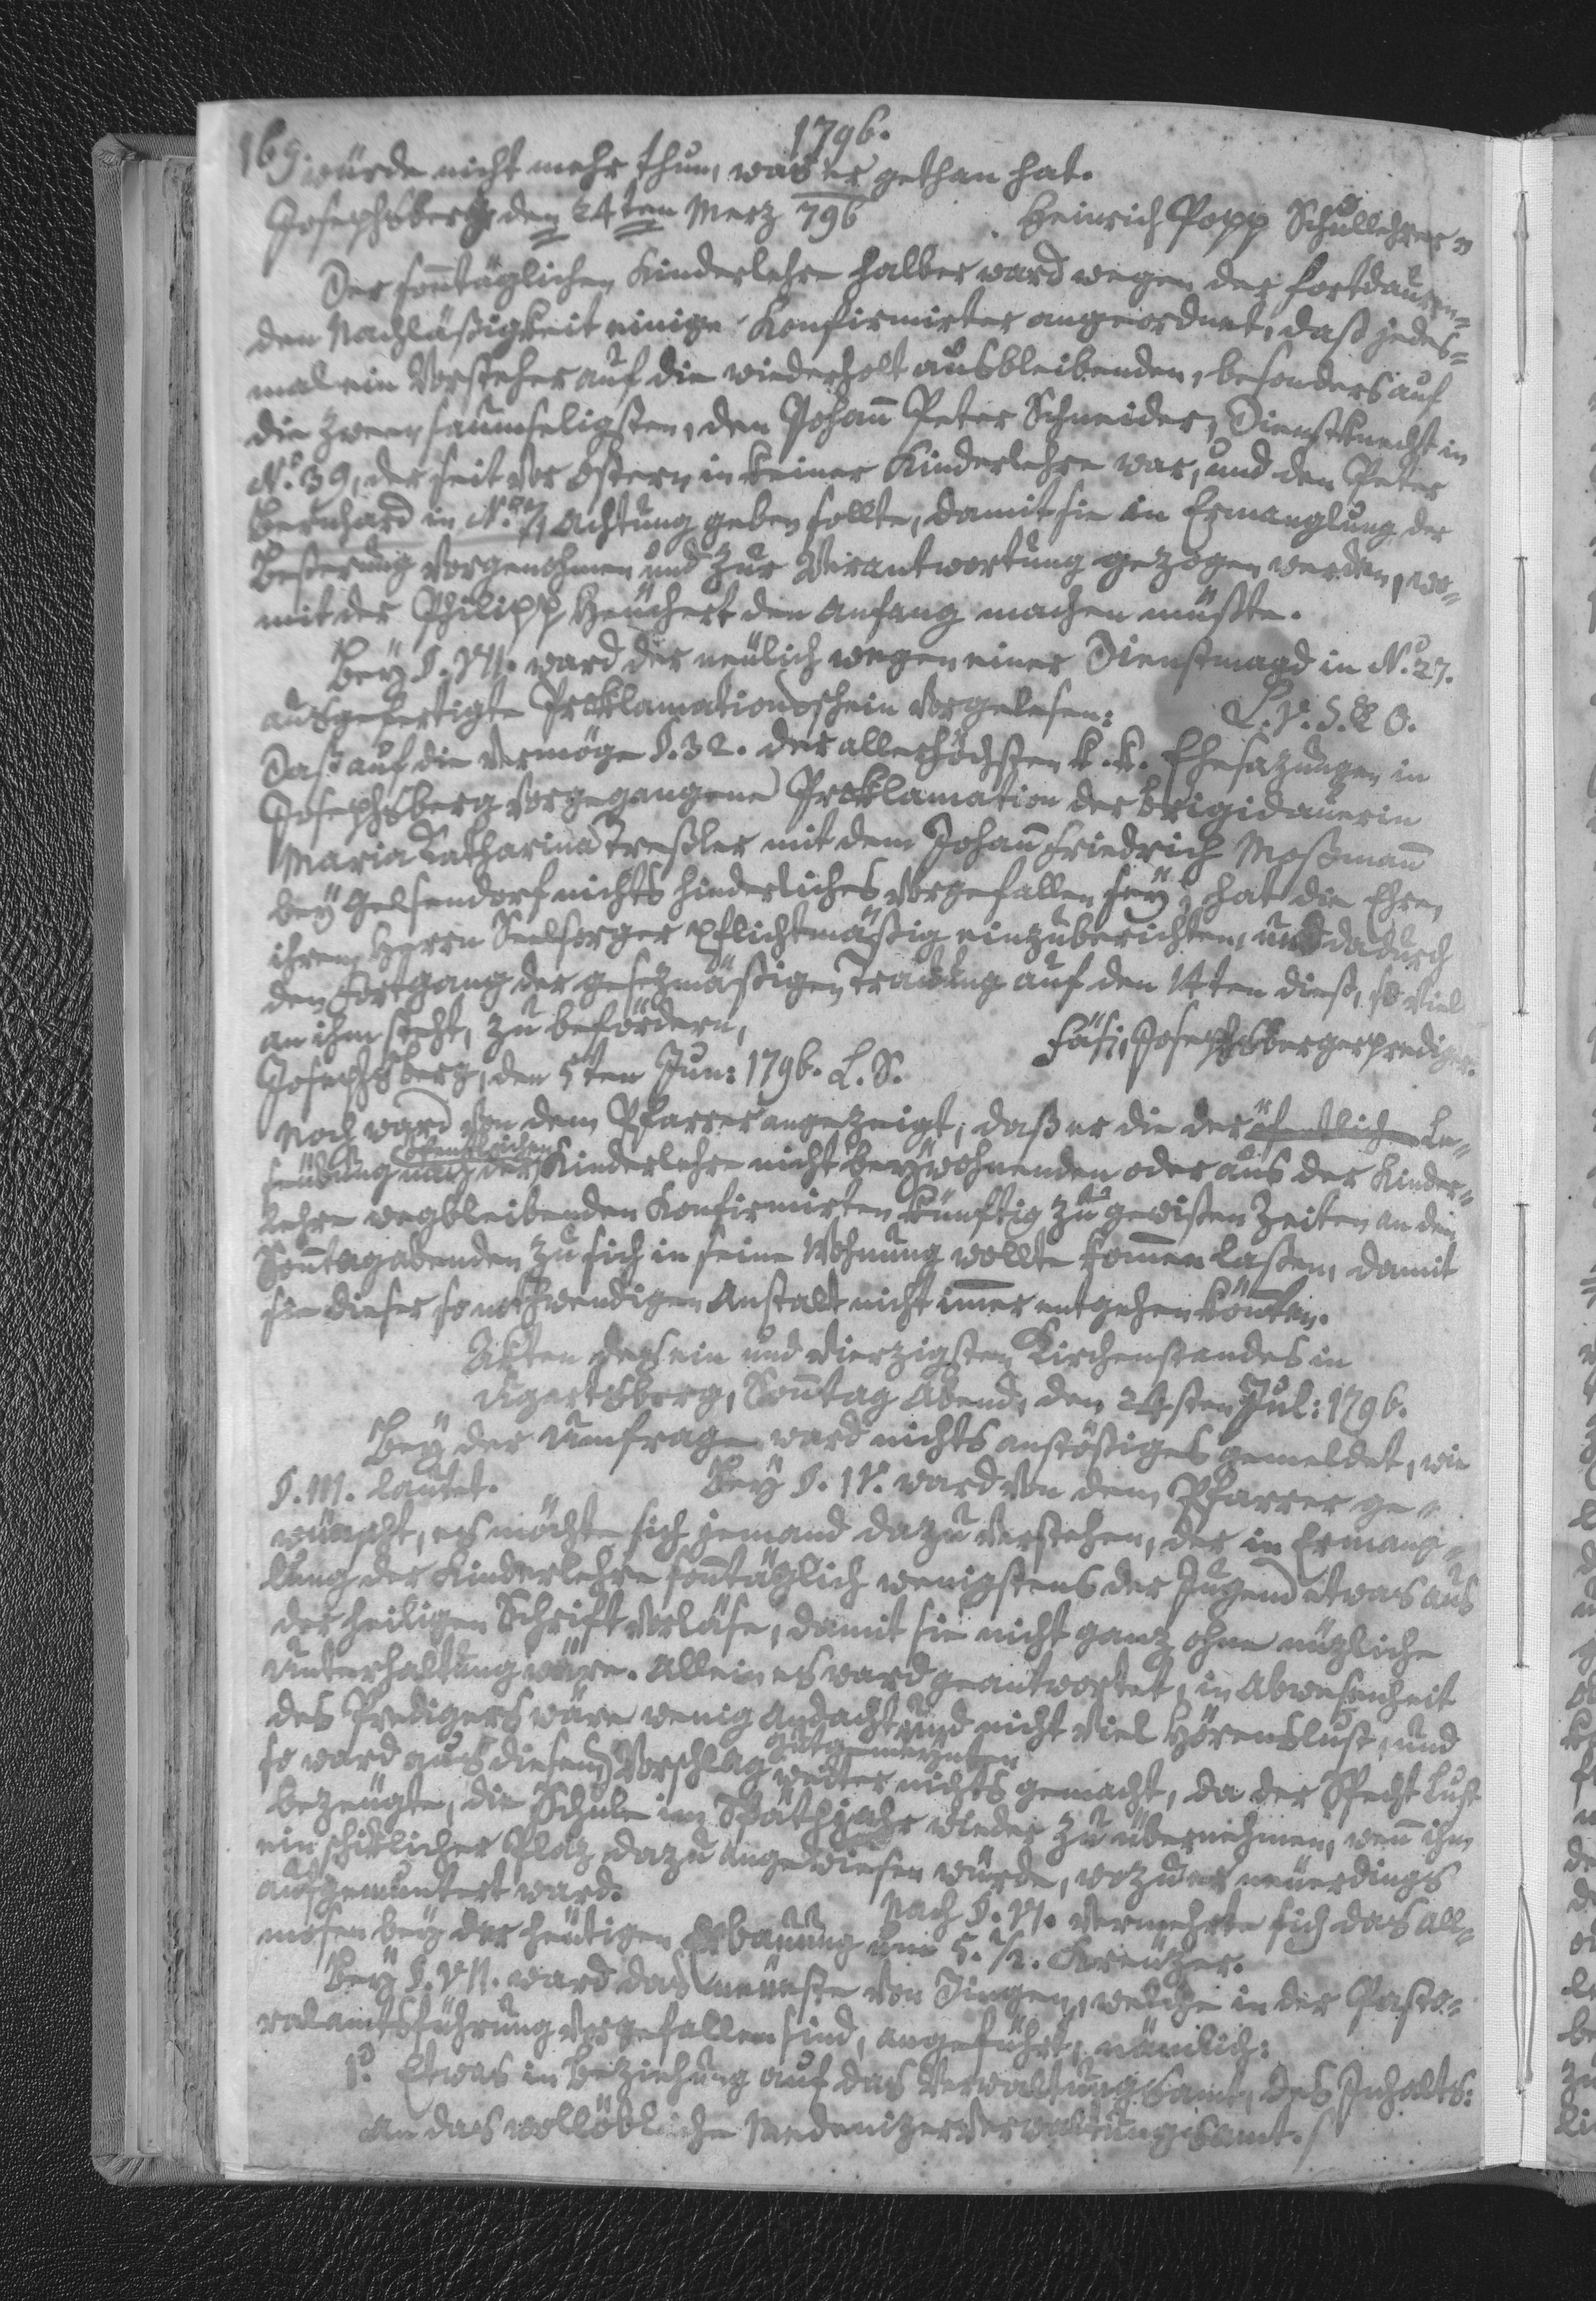 169.
1796.
würde nicht mehr thun, was er gethan hat.
Josephsberg den 24ten Merz 796 Heinrich Popp Schullehrer"
Der soñtäglichen Kinderlehre halber ward wegen der fortdauren=
den Nachläßigkeit einige Konfirmirter angeordnet, daß jedes=
mal ein Vorsteher auf die wiederholt ausbleibenden, besonders auf
die zween saumseligsten, den Johañ Peter Schneider, Dienstknecht in
N.º 39, der seit vor Ostern in keiner Kinderlehre war, und den Peter
Bernhard in N.º Achtung geben sollte, damit sie in Ermanglung der
Beßerung vorgenohmen und zur Verantwortung gezogen werden, wo=
mit der Philipp Heuchert den Anfang machen müßte.
Bey §. VI. ward der neulich wegen einer Dienstmagd in N.º 27.
ausgefertigte Proklamationsschein vorgelesen:
Daß auf die vermöge §. 32. der allerhöchsten k. k. Ehesazungen in
Josephsberg vorgegangene Proklamation der Brigidauerin
Maria Katharina Dreßler mit dem Johañ Friedrich Moßmañ
bey Gelsendorf nichts hinderliches vorgefallen sey, hat die Ehre,
ihrem Herrn Seelsorger pflichtmäßig einzuberichten, und dadurch
den Fortgang der gesezmäßigen Trauung auf den 14ten dieß, so viel
an ihm steht, zu befördern,
Josephsberg, den 5ten Jun: 1796. L. S. Fäsi, Josephsbergerprediger.
Noch ward von dem Pfarrer angezeigt, daß er die der öfentlichen Le=
öfentlichen
seübung nach der Kinderlehre nicht beywohnenden oder aus der Kinder=
lehre wegbleibenden Konfirmirten künftig zu gewißen Zeiten an den
Soñtagabenden zu sich in seine Wohnung wollte kom̃en laßen, damit
sie dieser so nothwendigen Anstalt nicht im̃er entgehen köñten.
Akten des ein und vierzigsten Kirchenstandes in
Ugartsberg, Soñtag Abend, den 24sten Jul: 1796.
Bey der Umfrage ward nichts anstößiges gemeldet, wie
§. III. lautet. Bey §. IV. ward von dem Pfarrer ge=
wünscht, es möchte sich jemand dazu verstehen, der in Ermang=
lung der Kinderlehre soñtäglich wenigstens der Jugend etwas aus
der heiligen Schrift vorläse, damit sie nicht ganz ohne nüzliche
Unterhaltung wäre. Allein es ward geantwortet, in Abwesenheit
des Predigers wäre wenig Andacht und nicht viel Hörenslust, und
gutgemeynten
so ward aus diesem Vorschlag weiter nichts gemacht, da der Specht Lust
bezeugte, die Schule im Spáthjahr wieder zu übernehmen, weñ ihm
ein schiklicher Plaz dazu angewiesen würde, wozu er neuerdings
aufgemuntert ward.
Nach §. VI. vermehrte sich das All=
mosen bey der heutigen Erbauung um 5. 1/2. Kreuzer.
Bey §. VII. ward das neueste von Dingen, welche in der Pasto=
ralamtsführung vorgefallen sind, angeführt, nämlich:
1.º Etwas in Beziehung auf das Verwaltungsamt, des Inhalts:
An das wollöbliche Medenizerverwaltungsamt./